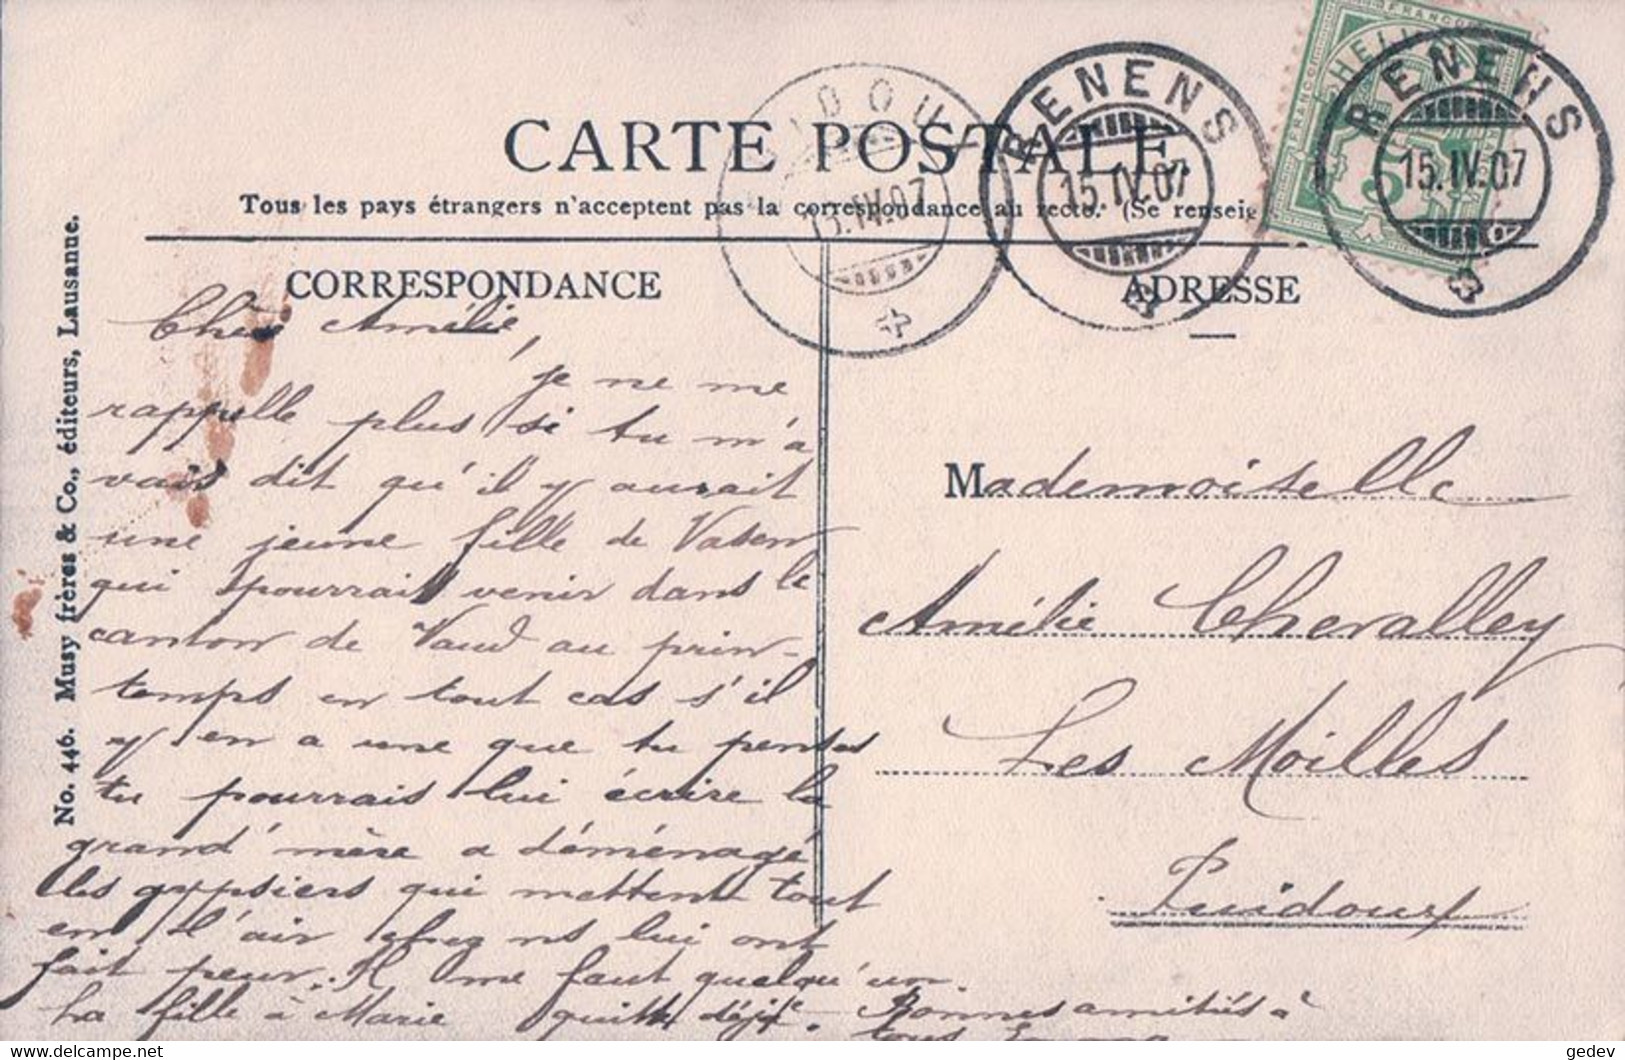 CARTE POSTALE.
Tous les pays étrangers n'acceptent pas la correspondance au recto. (Se renseig
CORRESPONDANCE
ADRESSE
RENENS
15.IV.07
RENENS
15.IV.07
IDOU
15.IV.07
HELVETIA
FRANCO
5
No. 446. Musy frères & Co., éditeurs, Lausanne.
Chère Amélie,
je ne me
rappelle plus si tu m'a
vais dit qu'il y aurait
une jeune fille de
qui pourrait venir dans le
canton de Vaud au prin-
temps en tout cas s'il
y en a une que tu penses
tu pourrais lui écrire la
grand'mère a déménagé
les gypsiers qui mettent tout
en l'air chez ns lui ont
fait peur. Il me faut quelqu'un
La fille à Marie quitte déjà. Bonnes amitiés à
tous Emma
Mademoiselle
Amélie Chevalley
Les Moilles
Puidoux
gedev